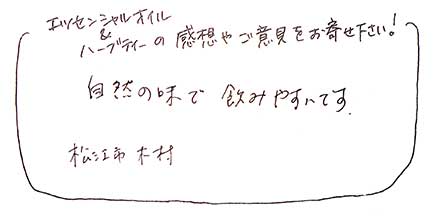 エッセンシャルオイル
&
ハーブティーの感想やご意見をお寄せ下さい!
自然の味で 飲みやすいです.
松江市 木村